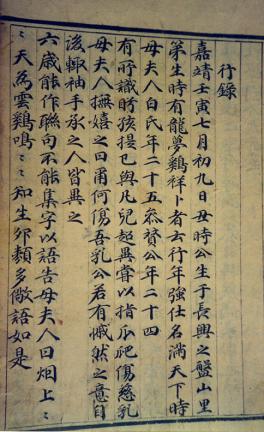 行錄
嘉靖壬寅七月初九日丑時公生于長興之盤山里
第生時有龍夢鷄祥卜者云行年強仕名滿天下時
母夫人白氏年二十五叅贊公年二十四
有所識眄孩提已與凡兒超異嘗以指瓜祀傷慈乳
母夫人撫嬉之曰甭何傷吾乳公若有慽然之意自
後輙袖手承之人皆異之
六歲能作聯句不能集字以語告母夫人曰烟上〻
〻天為雲鷄鳴〻〻知生卵類多儆語如是